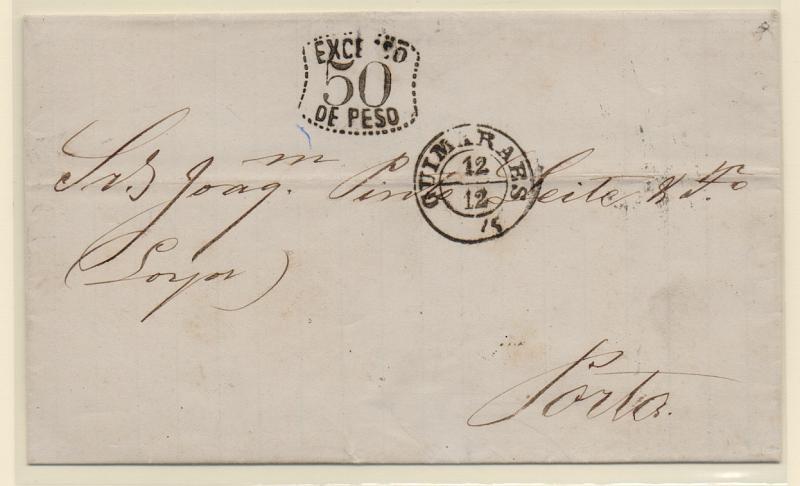 EXCE SO
50
DE PESO
GUIMARAES
12
12
75
Snrs Joaqm. Pinto Leite & Fo
Porto.